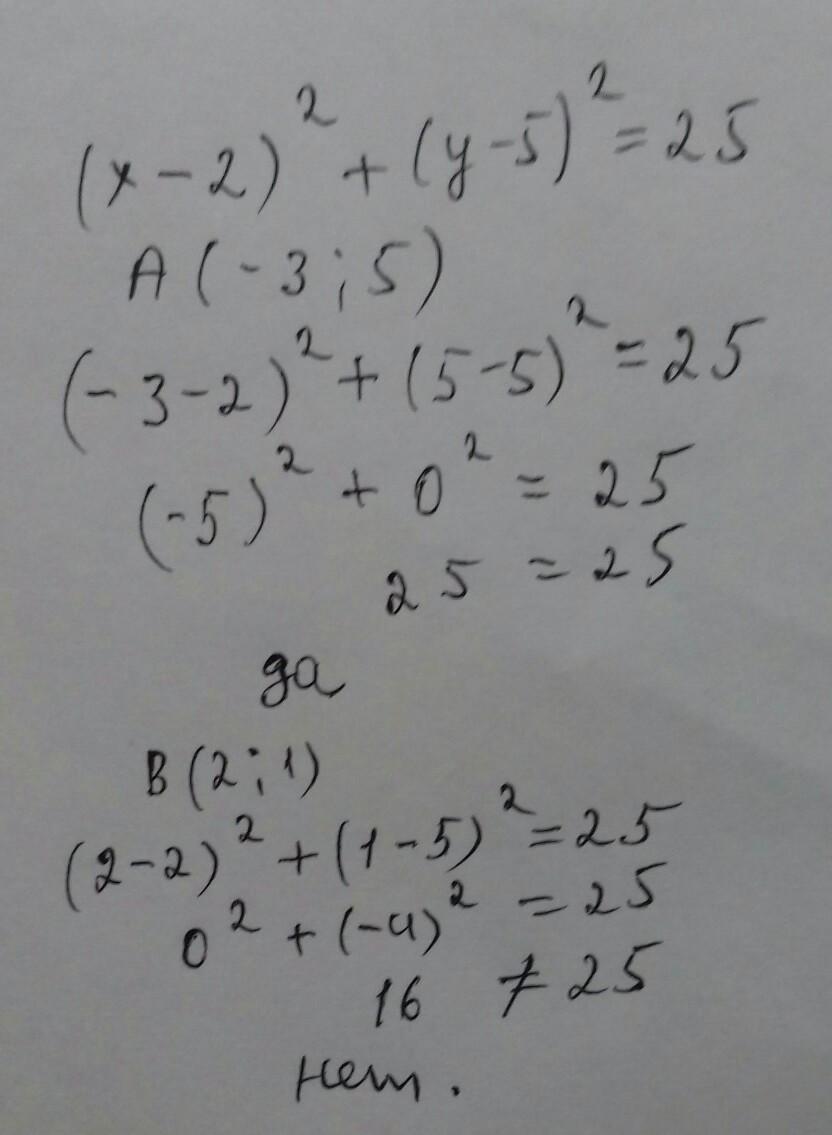 (x-2)² + (y-5)² = 25
A(-3;5)
(-3-2)² + (5-5)² = 25
(-5)² + 0² = 25
25 = 25
да
B(2;1)
(2-2)² + (1-5)² = 25
0² + (-4)² = 25
16 ≠ 25
нет.